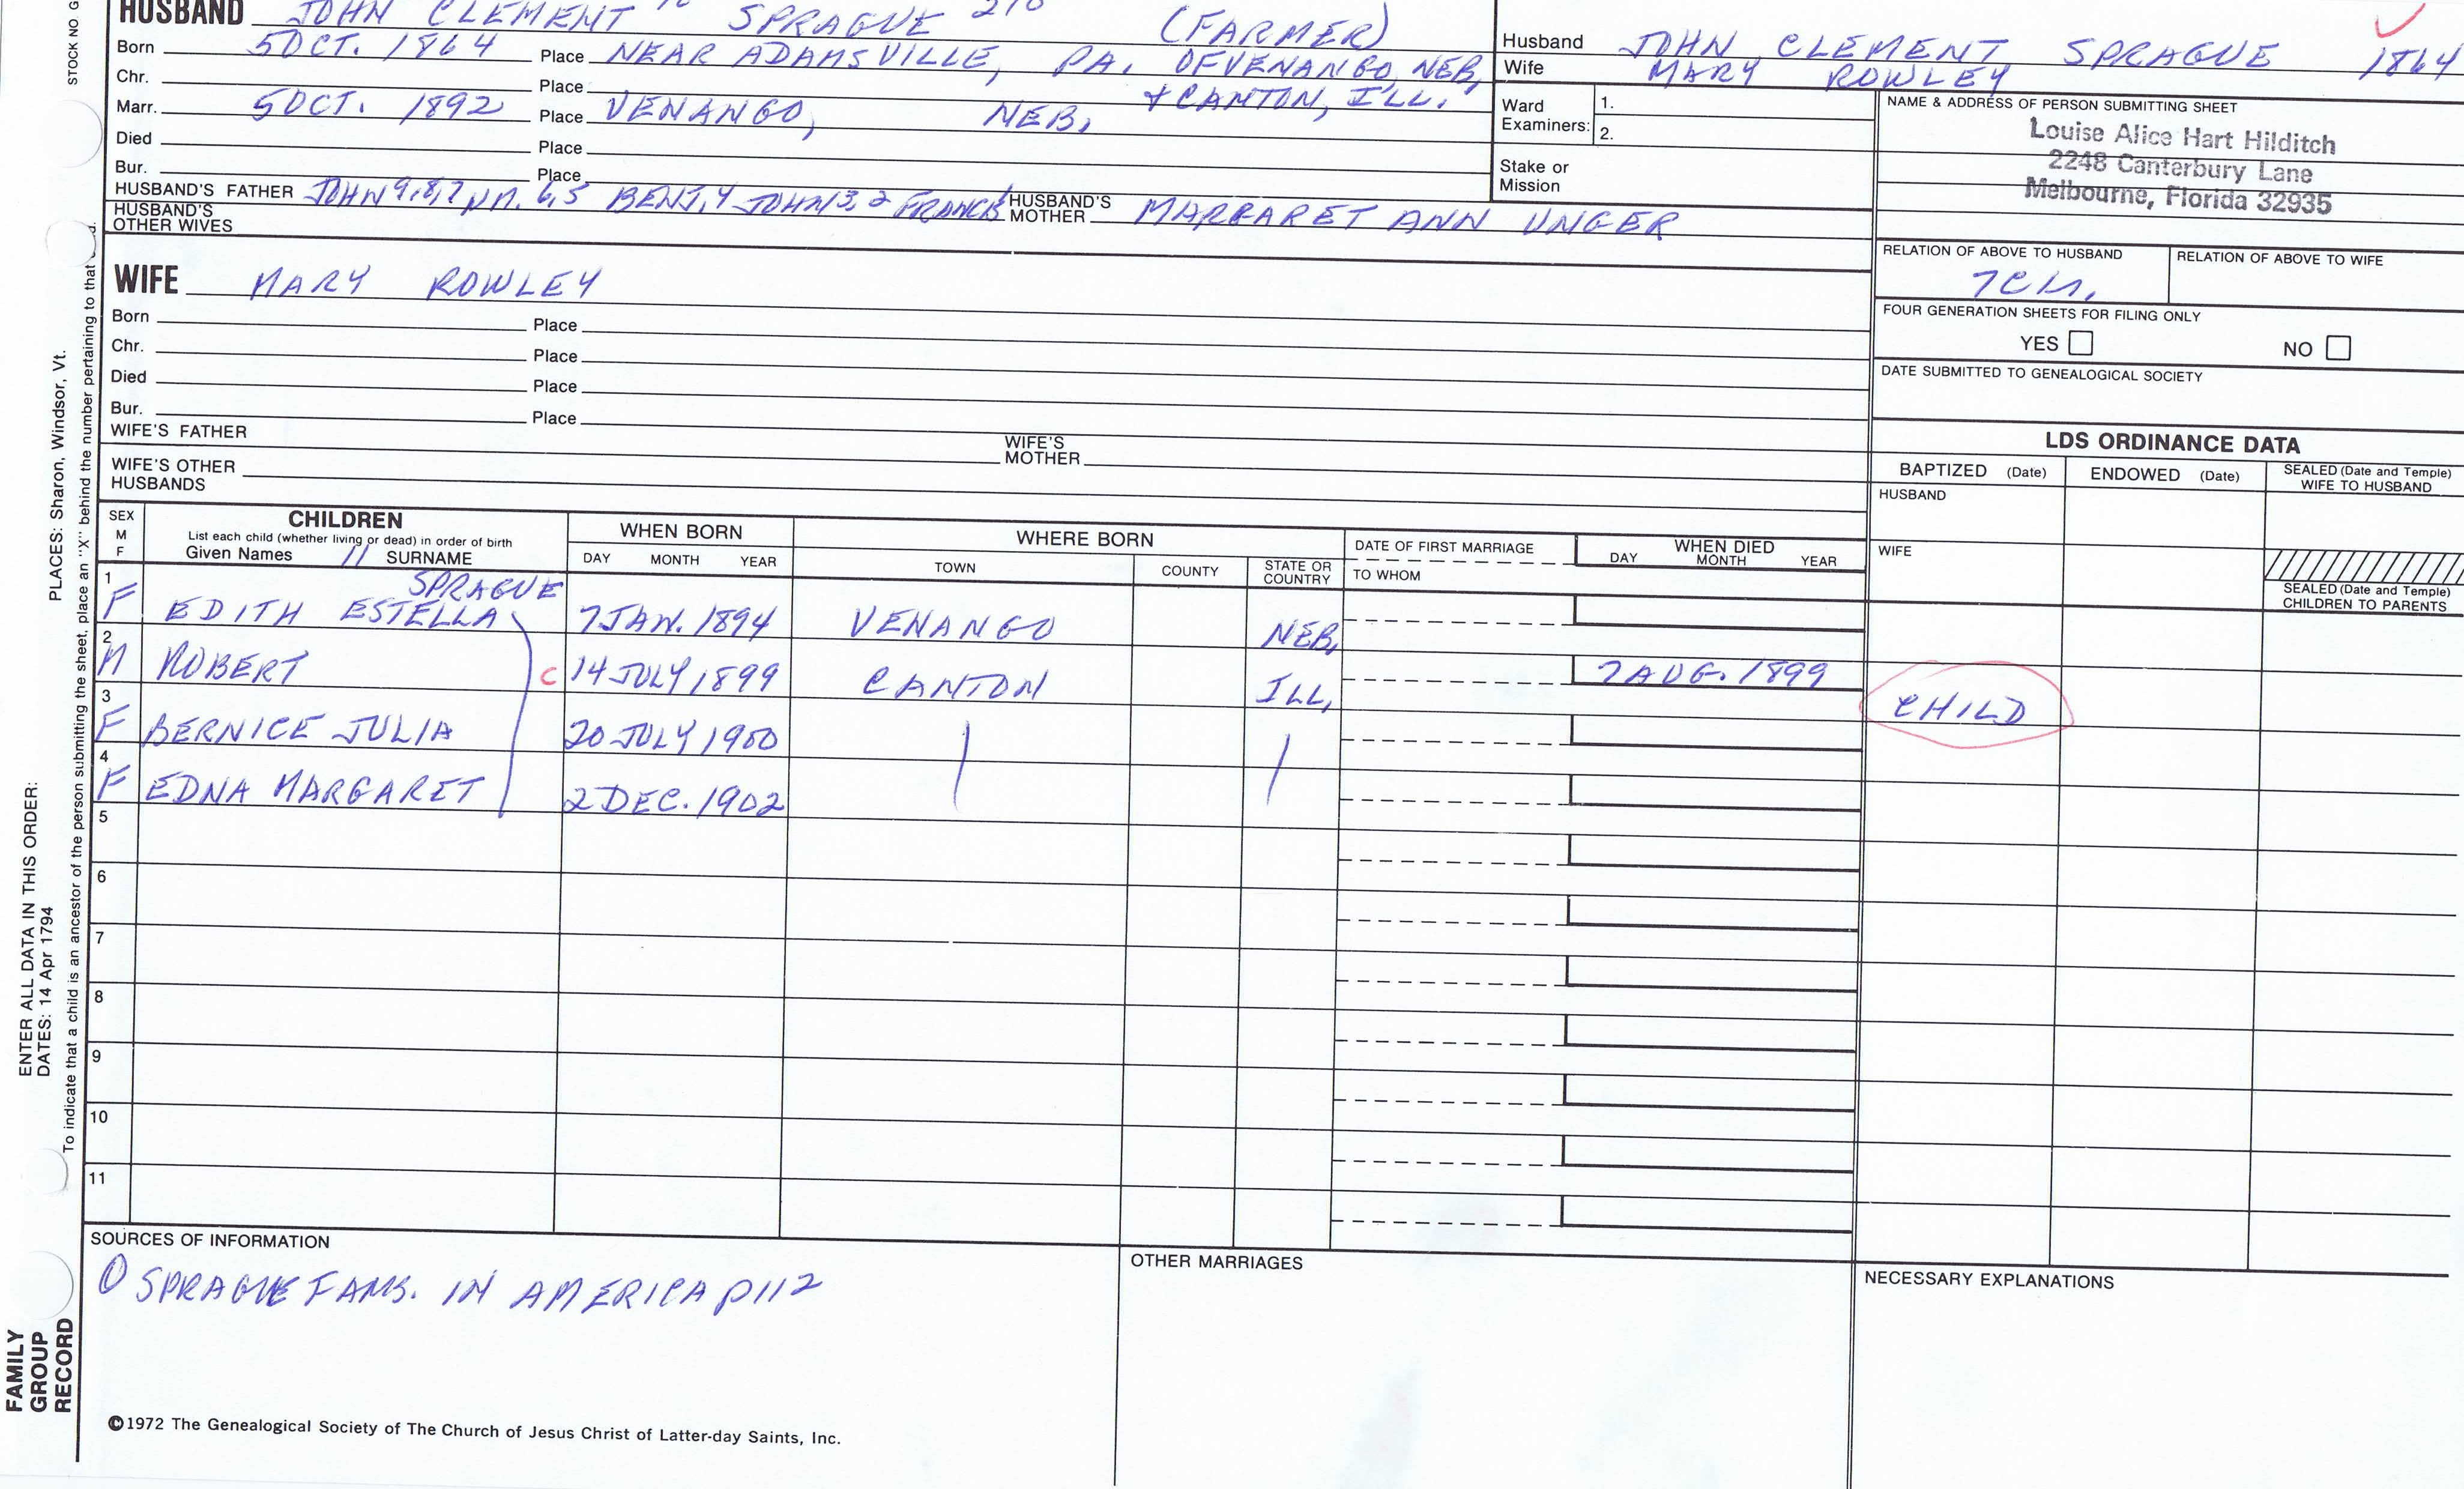 HUSBAND JOHN CLEMENT SPRAGUE (FARMER)
Born 5 OCT. 1864 Place NEAR ADAMSVILLE, PA. OF VENANGO, NEB,
Chr. Place + CANTON, ILL.
Marr. 5 OCT. 1892 Place VENANGO, NEB,
Died Place
Bur. Place
HUSBAND'S FATHER JOHN 9,8,7 WM. 6,5 BENJ,4 JOHN 3,2 FRANCIS HUSBAND'S MOTHER MARGARET ANN UNGER
HUSBAND'S OTHER WIVES
WIFE MARY ROWLEY
Born Place
Chr. Place
Died Place
Bur. Place
WIFE'S FATHER WIFE'S MOTHER
WIFE'S OTHER HUSBANDS
Husband JOHN CLEMENT SPRAGUE 1864
Wife MARY ROWLEY
Ward Examiners: 1.
2.
Stake or Mission
NAME & ADDRESS OF PERSON SUBMITTING SHEET
Louise Alice Hart Hilditch
2248 Canterbury Lane
Melbourne, Florida 32935
RELATION OF ABOVE TO HUSBAND RELATION OF ABOVE TO WIFE
FOUR GENERATION SHEETS FOR FILING ONLY
YES NO
DATE SUBMITTED TO GENEALOGICAL SOCIETY
LDS ORDINANCE DATA
BAPTIZED (Date) ENDOWED (Date) SEALED (Date and Temple) WIFE TO HUSBAND
HUSBAND
WIFE
SEALED (Date and Temple) CHILDREN TO PARENTS
SEX M F
CHILDREN
List each child (whether living or dead) in order of birth
Given Names 11 SURNAME
WHEN BORN
DAY MONTH YEAR
WHERE BORN
TOWN COUNTY STATE OR COUNTRY
DATE OF FIRST MARRIAGE
TO WHOM
WHEN DIED
DAY MONTH YEAR
SPRAGUE
1 F EDITH ESTELLA 7 JAN. 1894 VENANGO NEB,
2 M ROBERT C 14 JULY 1899 CANTON ILL, 7 AUG. 1899 CHILD
3 F BERNICE JULIA 20 JULY 1900
4 F EDNA MARGARET 2 DEC. 1902
5
6
7
8
9
10
11
SOURCES OF INFORMATION
① SPRAGUE FAMS. IN AMERICA P112
OTHER MARRIAGES
NECESSARY EXPLANATIONS
©1972 The Genealogical Society of The Church of Jesus Christ of Latter-day Saints, Inc.
STOCK NO G
PLACES: Sharon, Windsor, Vt.
ENTER ALL DATA IN THIS ORDER:
DATES: 14 Apr 1794
To indicate that a child is an ancestor of the person submitting the sheet, place an "X" behind the number pertaining to that
FAMILY
GROUP
RECORD